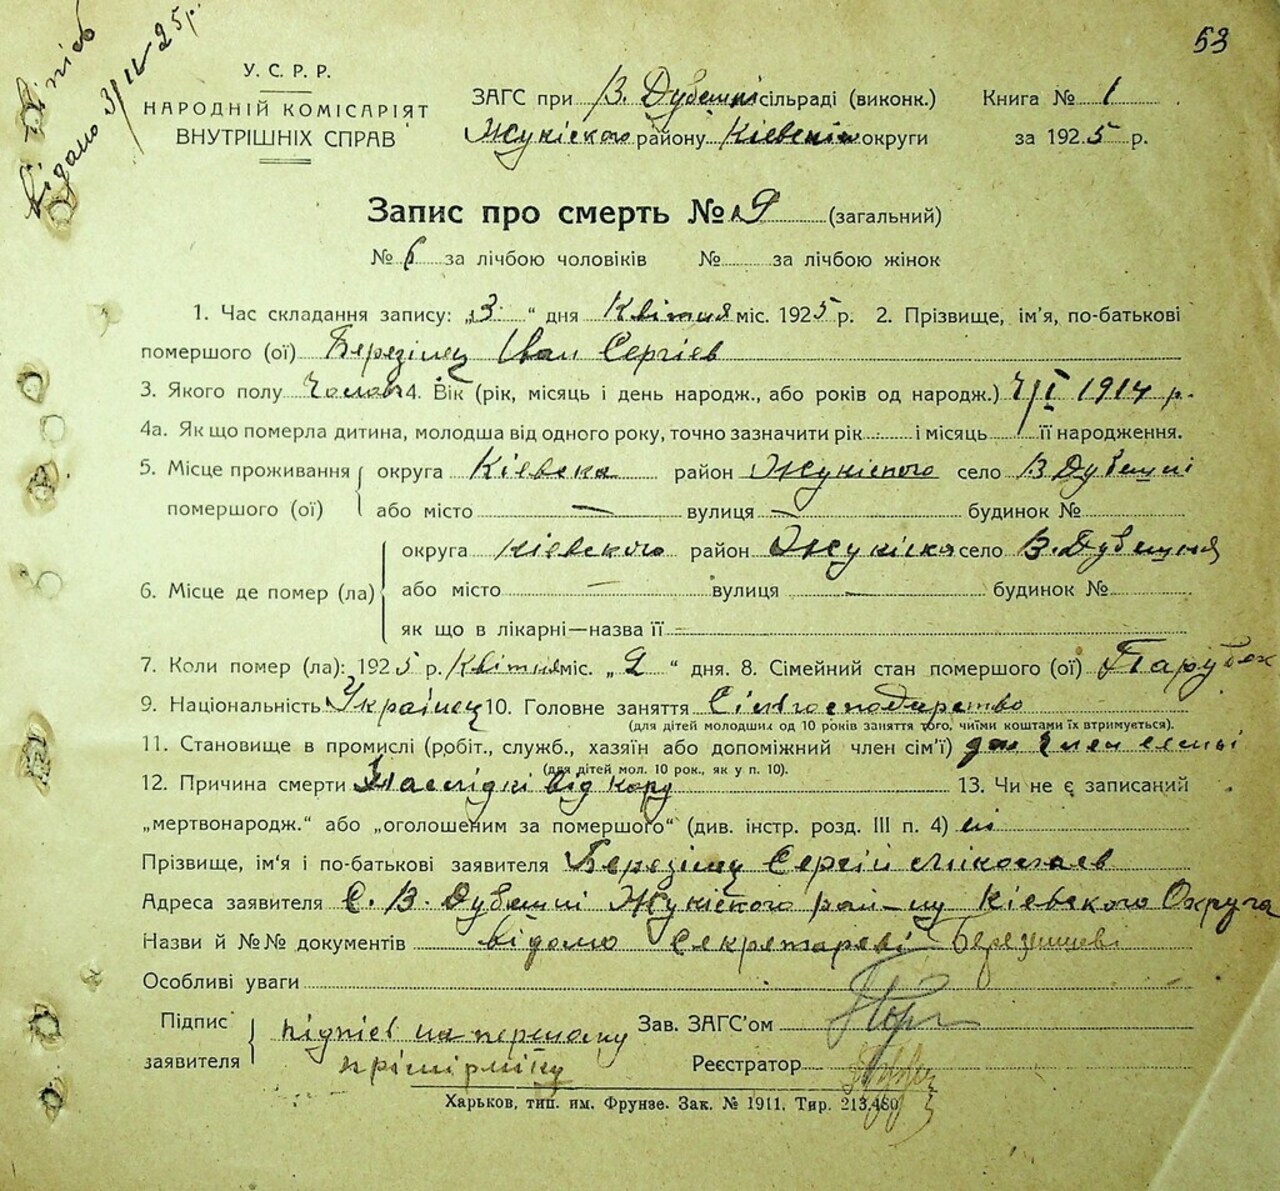 53
відано 3/IV-25р.
У. С. Р. Р.
НАРОДНІЙ КОМІСАРІЯТ
ВНУТРІШНІХ СПРАВ
ЗАГС при В. Дубешні сільраді (виконк.) Книга № 1
Жукіского району Кіевскій округи за 1925 р.
Запис про смерть № 9 (загальний)
№ 6 за лічбою чоловіків № за лічбою жінок
1. Час складання запису: „3“ дня Квітня міс. 1925 р. 2. Прізвище, ім’я, по-батькові
помершого (ої) Березінец Іван Сергіев
3. Якого полу Чолов 4. Вік (рік, місяць і день народж., або років од народж.) 7/I 1914 р.
4а. Як що померла дитина, молодша від одного року, точно зазначити рік і місяць її народження.
5. Місце проживання округа Кіевска район Жукіского село В Дубешні
помершого (ої) або місто — вулиця — будинок №
округа Кіевского район Жукіска село В. Дубешня
6. Місце де помер (ла) або місто — вулиця — будинок №
як що в лікарні—назва її
7. Коли помер (ла): 1925 р. Квітня міс. „2“ дня. 8. Сімейний стан помершого (ої) Парубок
9. Національність Українец 10. Головне заняття Сільгосподарство
(для дітей молодших од 10 років заняття того, чиїми коштами їх втримується).
11. Становище в промислі (робіт., служб., хазяїн або допоміжний член сім’ї) доп член семьі
(для дітей мол. 10 рок., як у п. 10).
12. Причина смерти Наслідкі від кору 13. Чи не є записаний
„мертвонародж.“ або „оголошеним за помершого“ (див. інстр. розд. III п. 4) ні
Прізвище, ім’я і по-батькові заявителя Березінец Сергій Миколаев
Адреса заявителя С. В. Дубешні Жукіского рай-ну Кіевского Округа
Назви й №№ документів відомо Секретареві
Особливі уваги
Підпис підпісь на першому Зав. ЗАГС’ом
заявителя прімірніку Реєстратор
Харьков, тип. им. Фрунзе. Зак. № 1911. Тир. 213.480